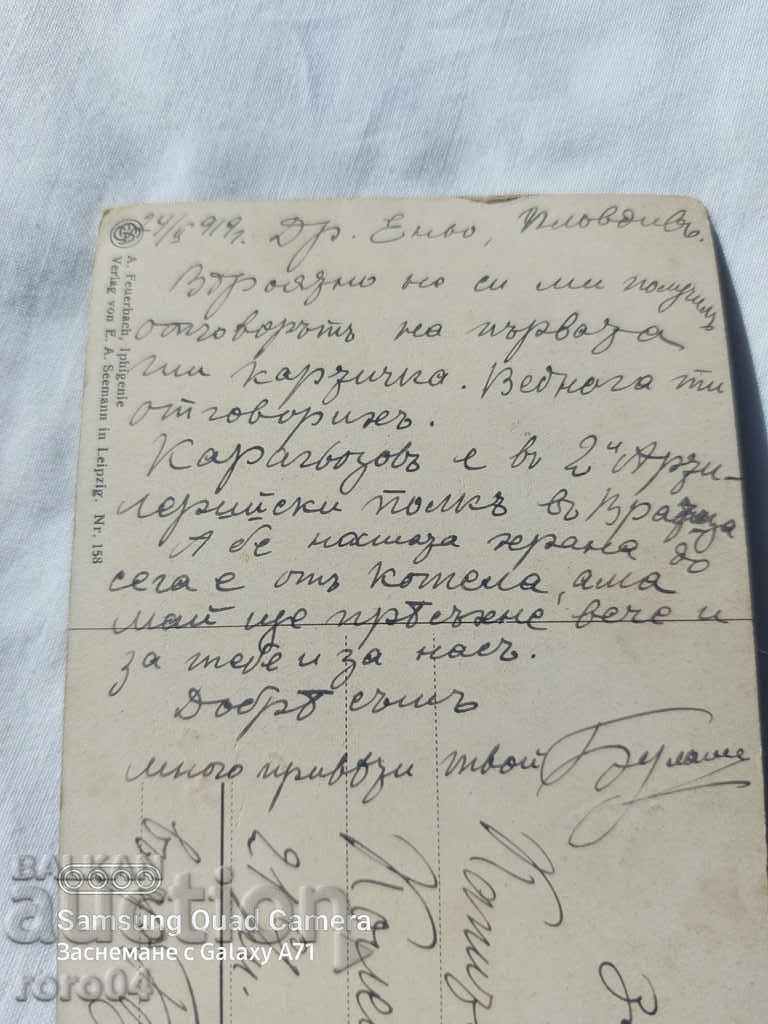 24/II 919 г. Др. Еньо, Пловдивъ.
Вѣроязно не си ми получилъ
отговорътъ на първаза
ми карзичка. Веднага ти
отговорихъ.
Карагьозовъ е въ 2и Арзи-
лерийски полкъ въ Враца
А бе нашаза храна до
сега е отъ котела, ама
май ще прѣсъхне вече и
за тебе и за насъ.
Добрѣ съмъ
много привѣзи твой
A. Feuerbach, Iphigenie
Verlag von E. A. Seemann in Leipzig. Nr. 158
БАЛКАН
auction
roro04
Samsung Quad Camera
Заснемане с Galaxy A71